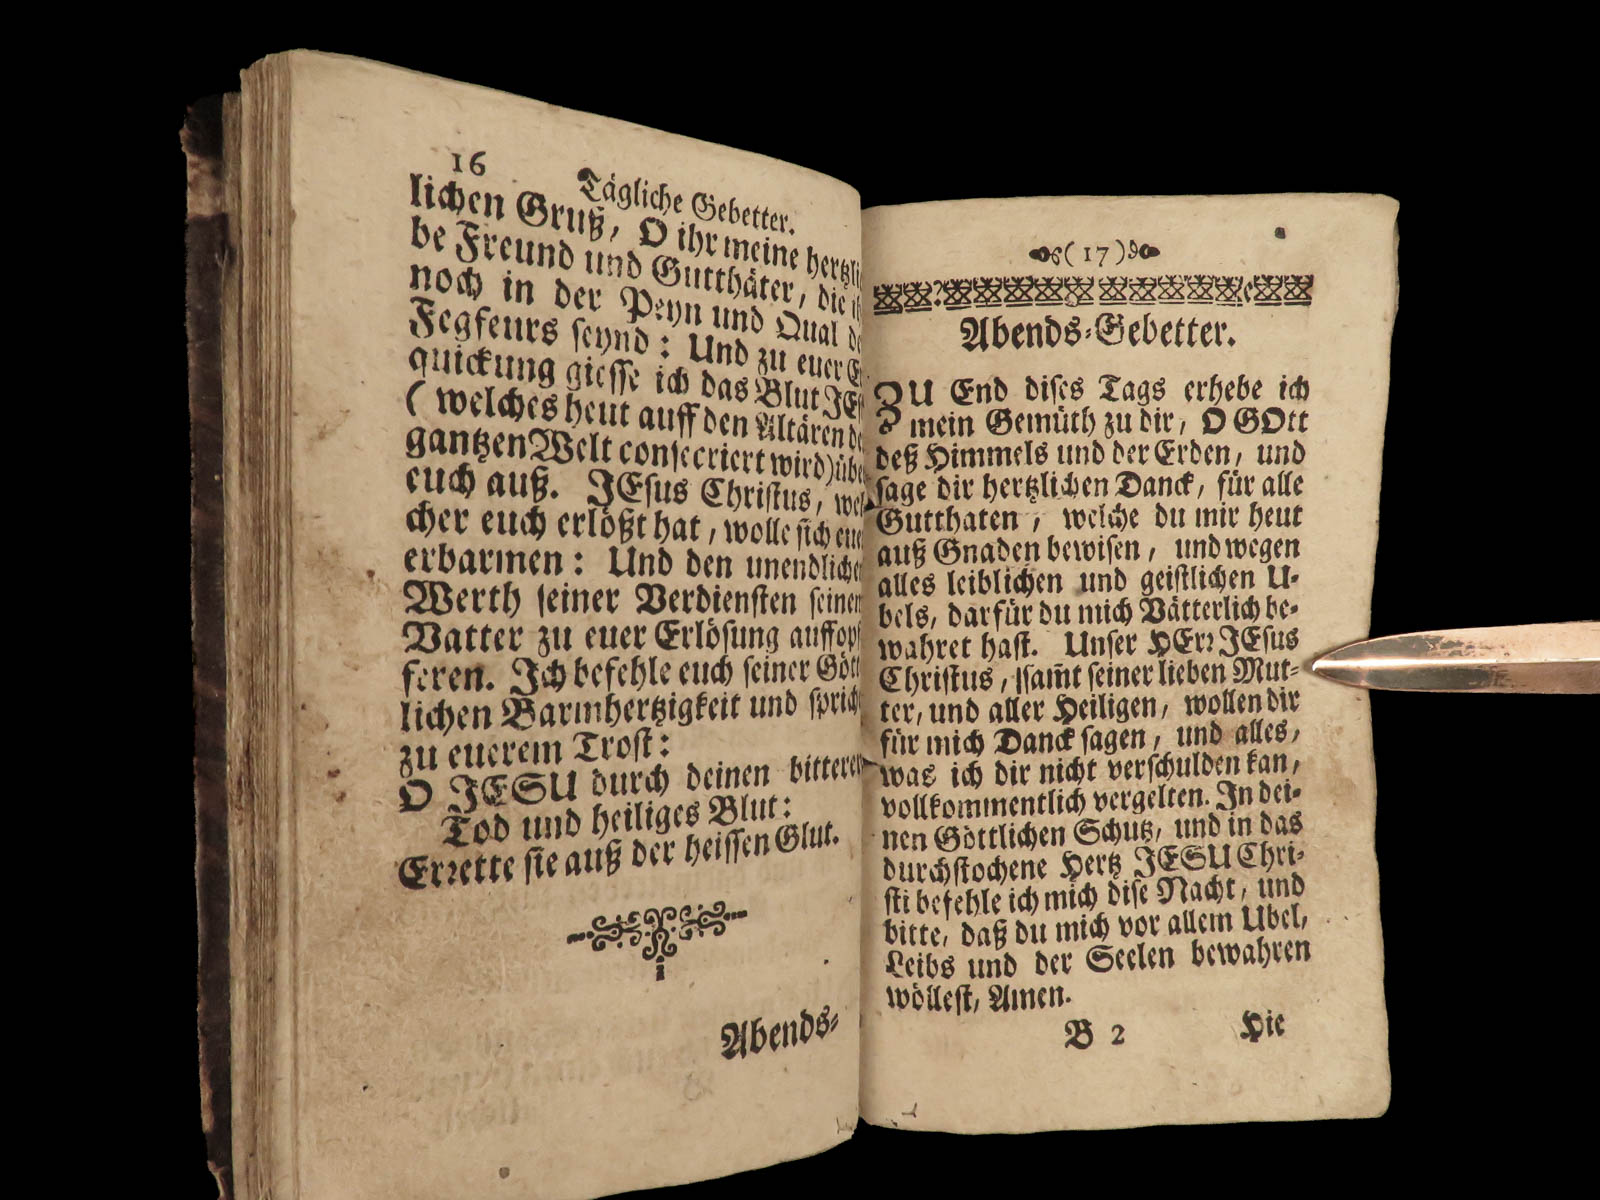 16
Tägliche Gebetter.
lichen Gruß, O ihr meine hertzli
be Freund und Gutthäter, die
noch in der Peyn und Qual
Fegfeurs seynd: Und zu euer
quickung giesse ich das Blut JES
(welches heut auff den Altären
gantzen Welt consecriert wird) übe
euch auß. JEsus Christus, wel
cher euch erlößt hat, wolle sich eue
erbarmen: Und den unendliche
Werth seiner Verdiensten seinen
Vatter zu euer Erlösung auffop
feren. Ich befehle euch seiner Gött
lichen Barmhertzigkeit und sprich
zu euerem Trost:
O JESU durch deinen bitteren
Tod und heiliges Blut:
Errette sie auß der heissen Glut.
Abends-
(17)
Abends-Gebetter.
ZU End dises Tags erhebe ich
mein Gemüth zu dir, O GOtt
deß Himmels und der Erden, und
sage dir hertzlichen Danck, für alle
Gutthaten, welche du mir heut
auß Gnaden bewisen, und wegen
alles leiblichen und geistlichen U-
bels, darfür du mich Vätterlich be-
wahret hast. Unser HErr JEsus
Christus, samt seiner lieben Mut-
ter, und aller Heiligen, wollen dir
für mich Danck sagen, und alles,
was ich dir nicht verschulden kan,
vollkommentlich vergelten. In dei-
nen Göttlichen Schutz, und in das
durchstochene Hertz JESU Chri-
sti befehle ich mich dise Nacht, und
bitte, daß du mich vor allem Ubel,
Leibs und der Seelen bewahren
wöllest, Amen.
B 2 Hie